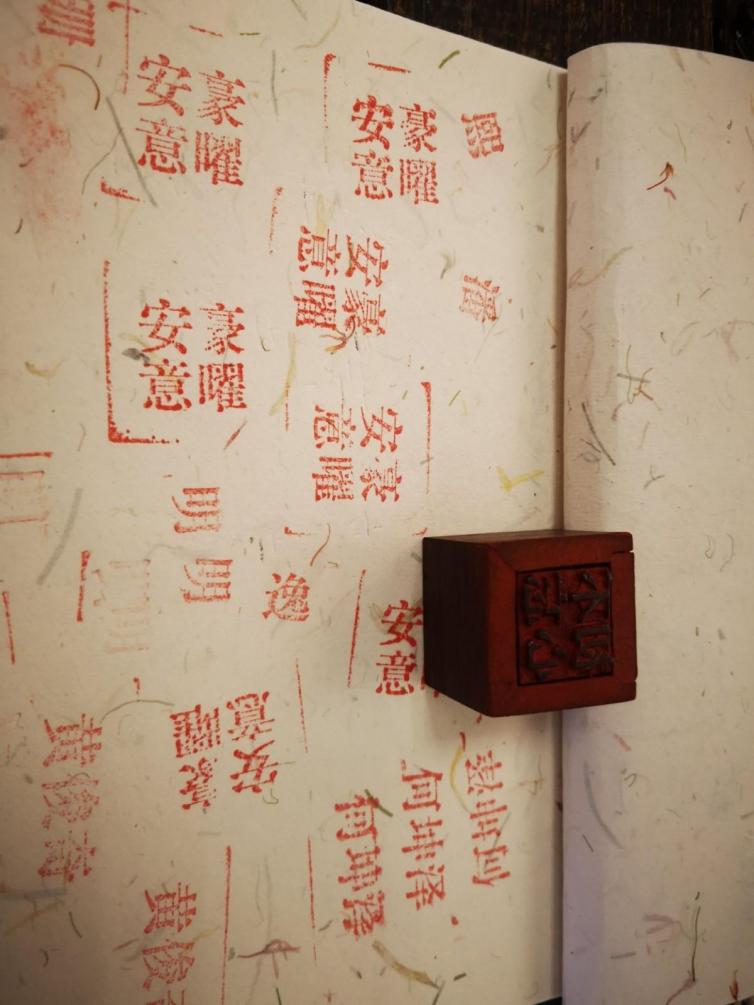 豪曜
安意
豪曜
安意
熙
豪曜
安意
潘
豪曜
安意
豪曜
安意
明
明
逸
安意
豪曜
安意
何坤泽
何坤泽